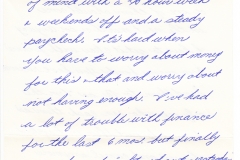 of mind with a 40 hour week
a weekends off and a steady
paycheck. It's hard when
you have to worry about money
for this & that and worry about
not having enough. I've had
a lot of trouble with finance
for the last 6 mos. but finally